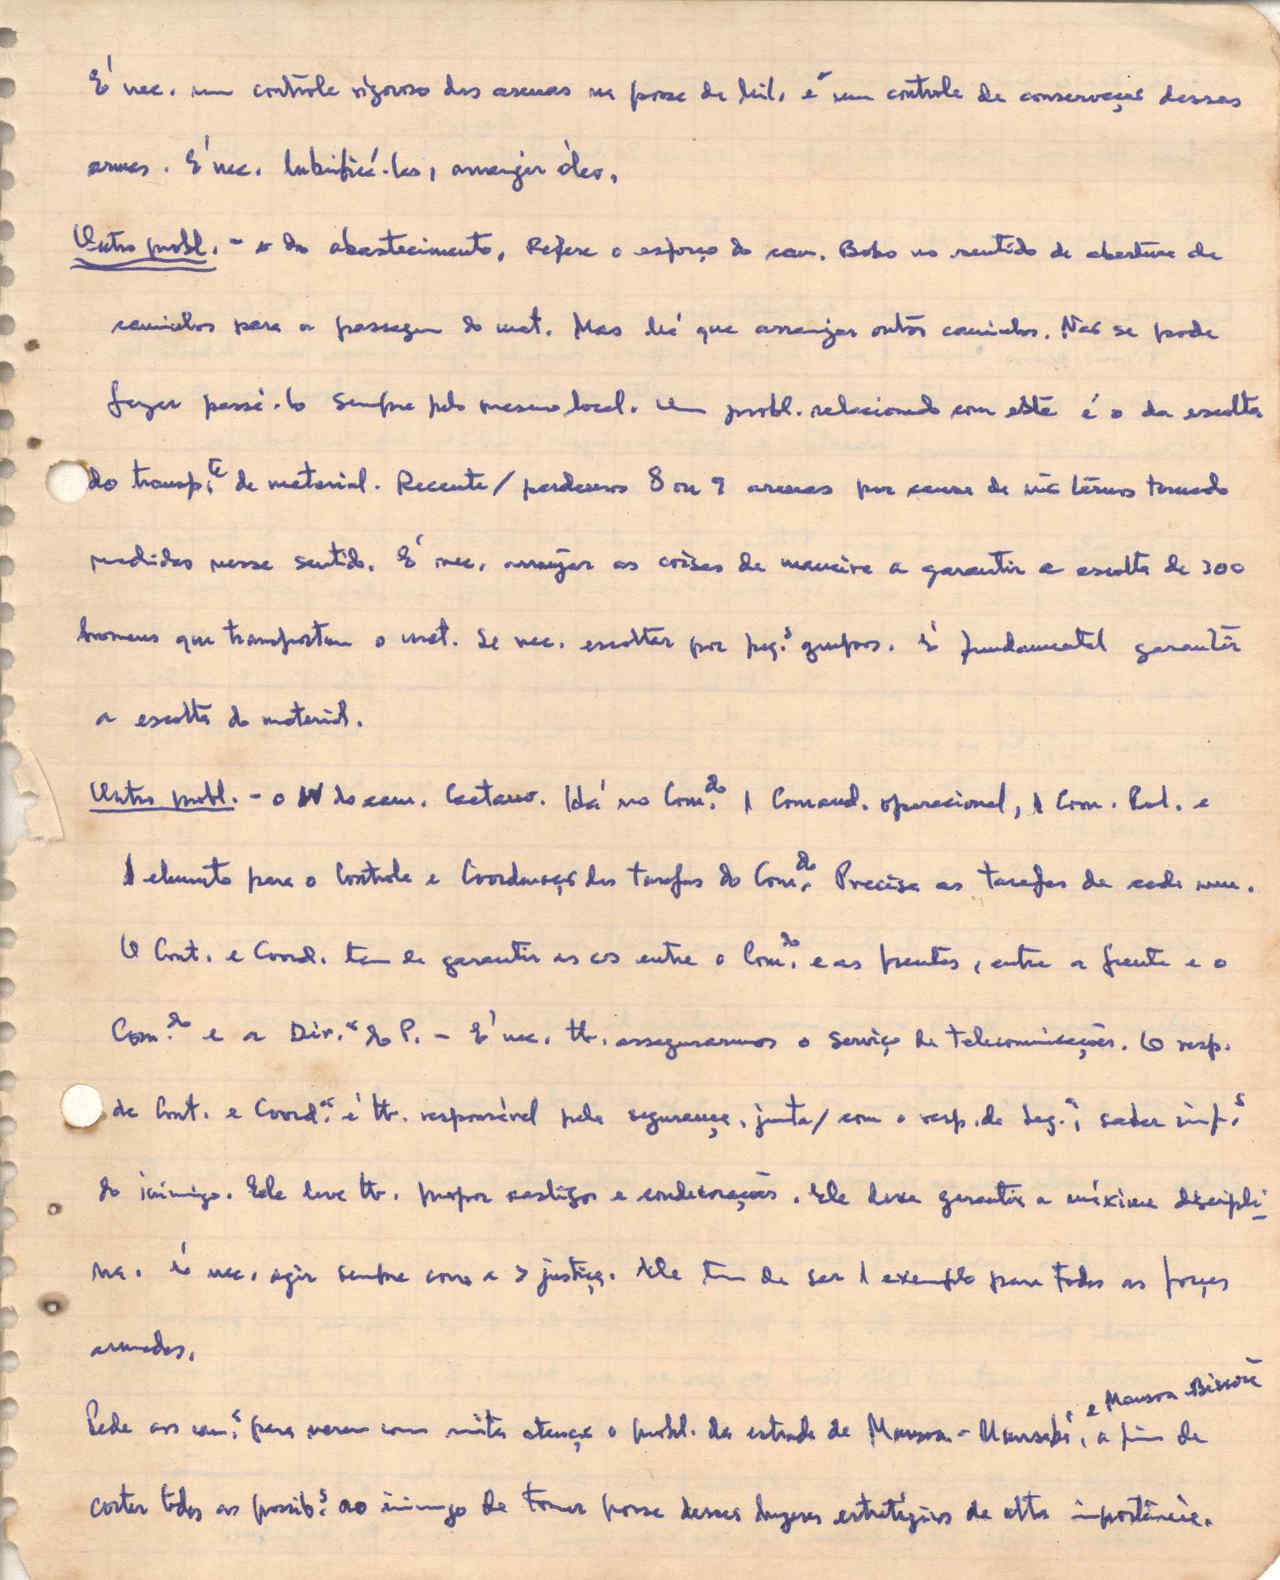 É nec. um contrôle rigoroso das armas na posse da mil. e um controle de conservação dessas
armas. É nec. lubrificá-las, arranjar óleo.
Outro probl. - o do abastecimento. Refere o esforço do cam. Bobo no sentido de abertura de
caminhos para a passagem do mat. Mas há que arranjar outros caminhos. Não se pode
fazer passá-lo sempre pelo mesmo local. Um probl. relacionado com êste é o da escolta
do transp.te de material. Recente/ perdemos 8 ou 9 armas por causa de não têrmos tomado
medidas nesse sentido. É nec. arranjar as coisas de maneira a garantir a escolta de 300
homens que transportam o mat. Se nec. escoltar por peq.s grupos. É fundamental garantir
a escolta do material.
Outro probl. - o do cam. Caetano. Há no Com.do 1 Comand. operacional, 1 Com. Pol. e
1 elemento para o Controle e Coordenação das tarefas do Com.do Precisa as tarefas de cada um.
O Cont. e Coord. tem de garantir as entre o Com.do e as frentes, entre a frente e o
Com.do e a Dir.ão do P. - É nec. tb. assegurarmos o serviço de telecomunicações. O resp.
de Cont. e Coord.ão é tb. responsável pela segurança, junta/ com o resp. da Seg.a, saber inf.s
do inimigo. Ele deve tb. propor castigos e condecorações. Ele deve garantir a máxima discipli-
na. É nec. agir sempre com a > justiça. Ele tem de ser 1 exemplo para todas as forças
armadas.
Pede aos cam.s para verem com muita atenção o probl. da estrada de Mansoa - Mansabá, e Mansoa Bissorã
a fim de
cortar todas as possib.s ao inimigo de tomar posse desses lugares estratégicos de alta importância.